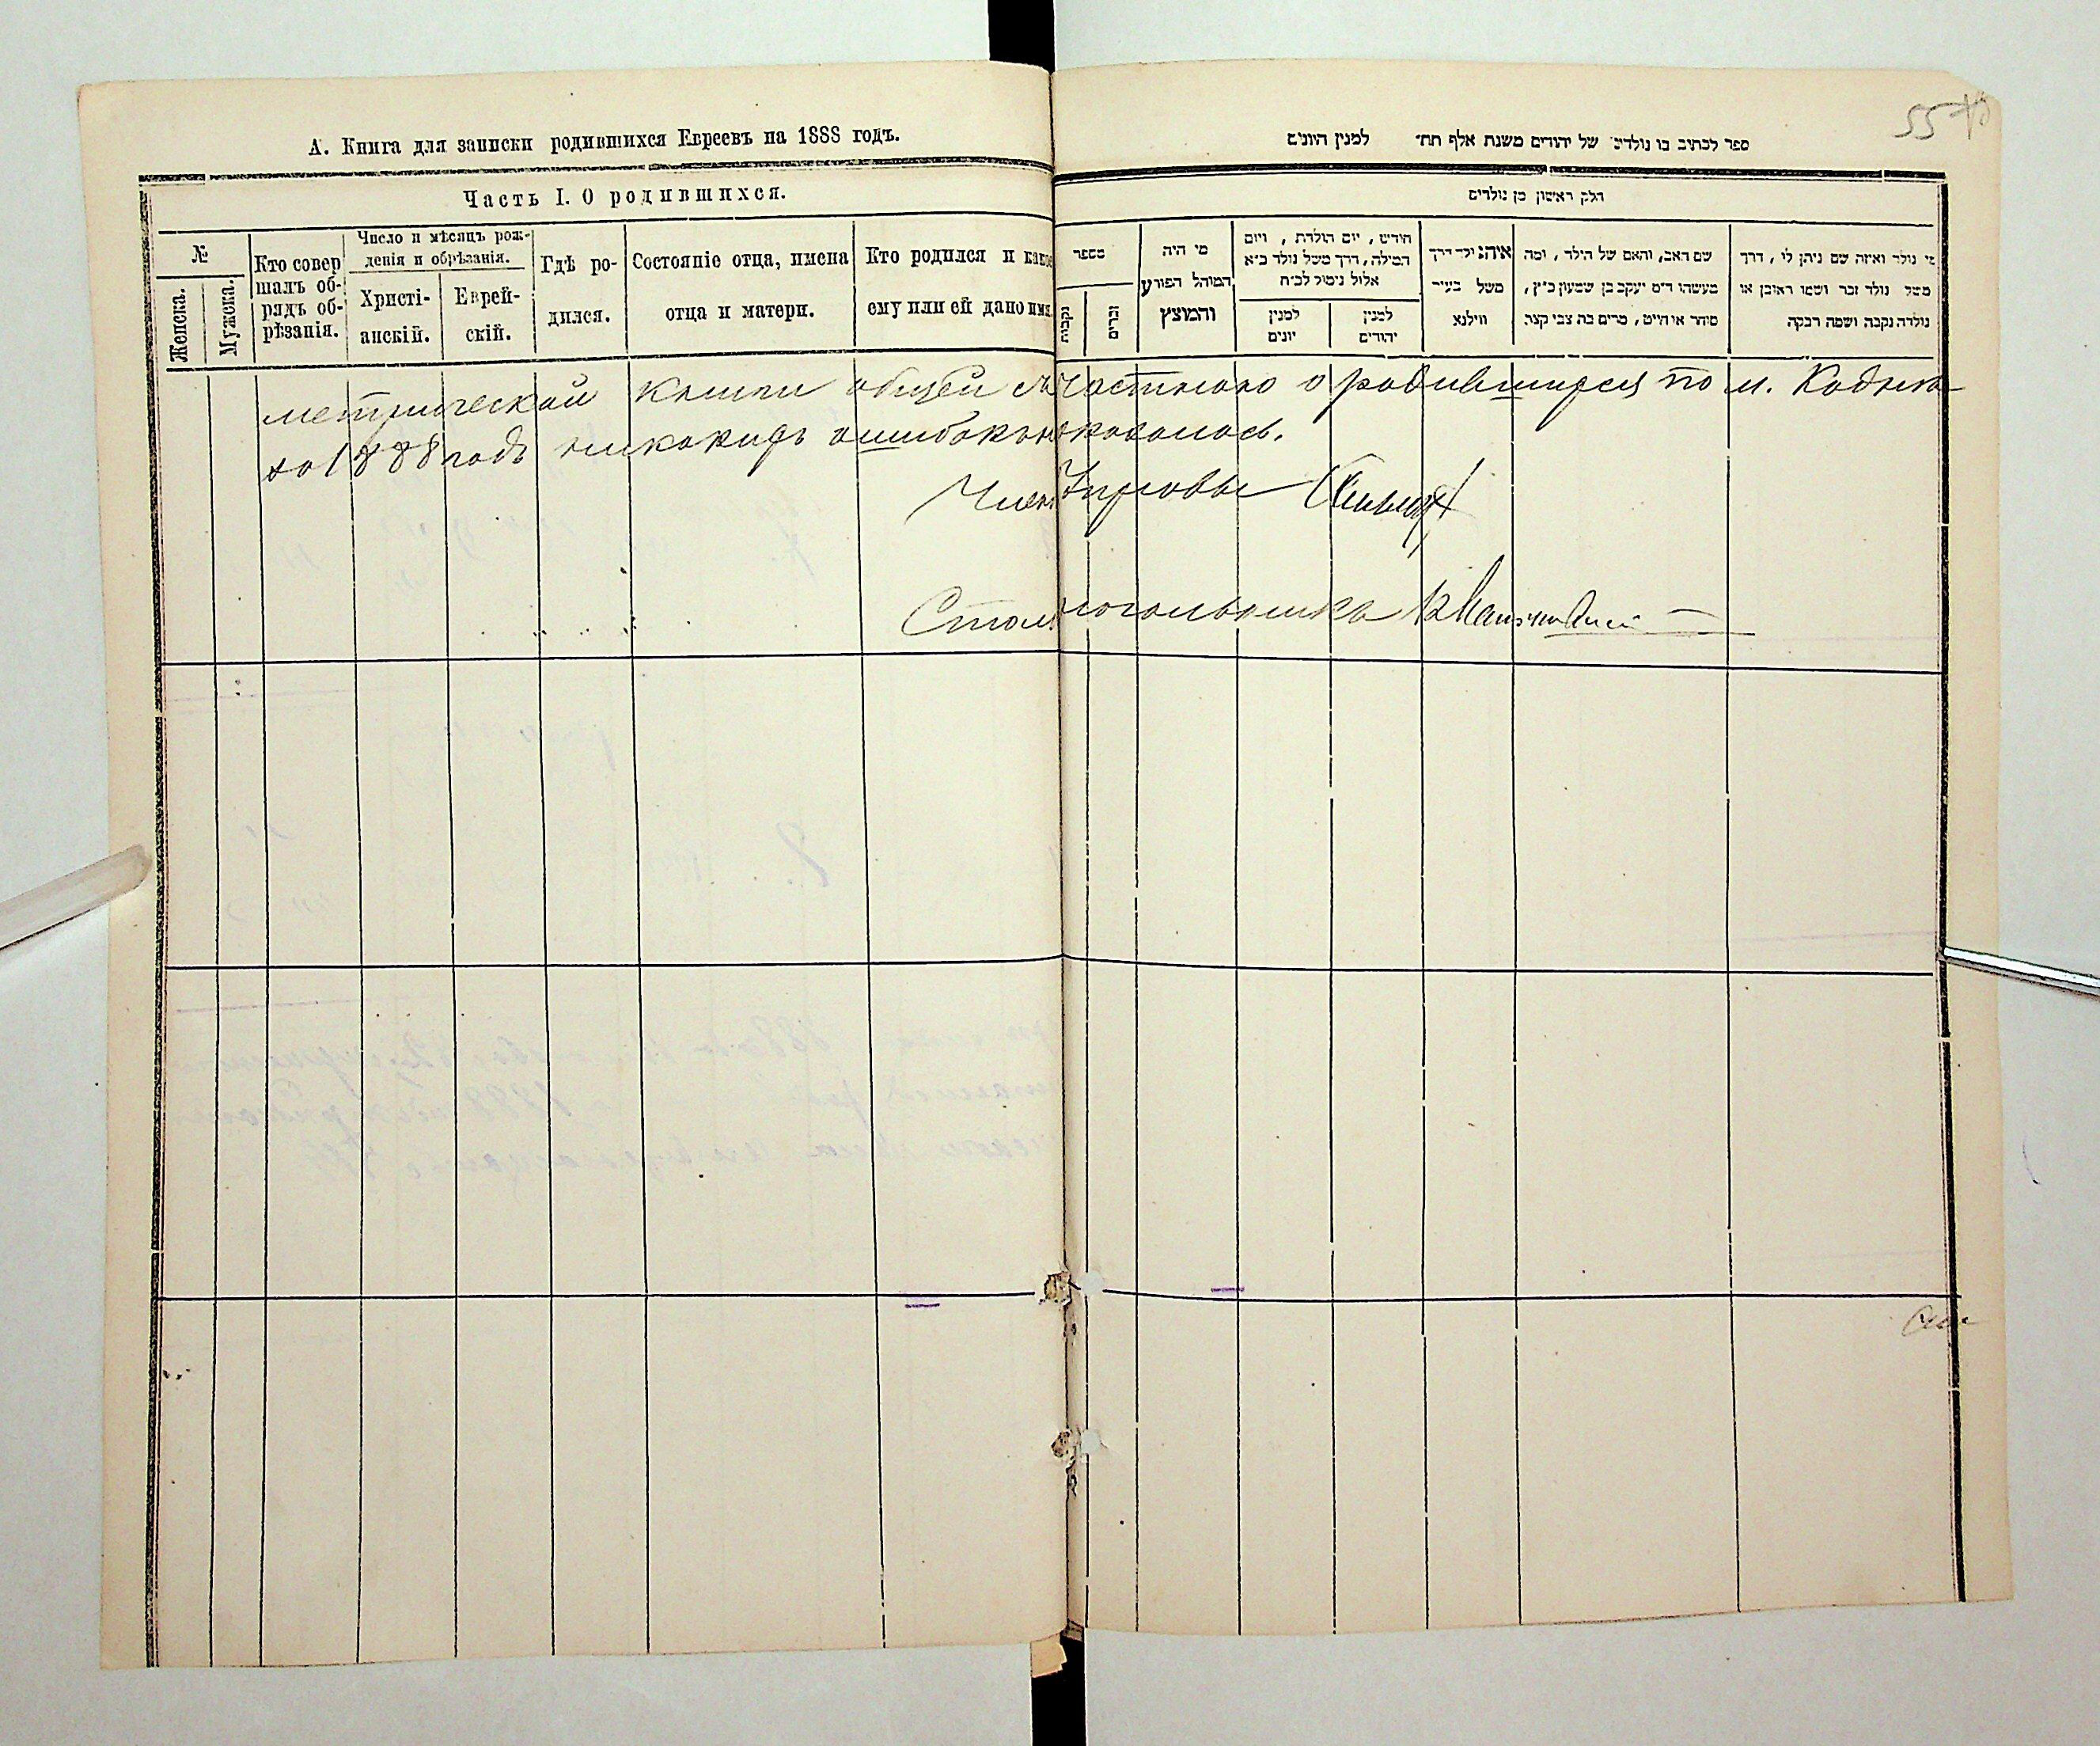 55
А. Книга для записки родившихся Евреевъ на 1888 годъ.
Часть I. О родившихся.
№
Женска.
Мужска.
Кто совер
шалъ об-
рядъ об-
рѣзанія.
Число и мѣсяцъ рож-
денія и обрѣзанія.
Христі-
анскій.
Еврей-
скій.
Гдѣ ро-
дился.
Состояніе отца, имена
отца и матери.
Кто родился и какое
ему или ей дано имя
ספר לכתוב בו נולדים של יהודים משנת אלף תת׳ למנין היונים
חלק ראשון מן נולדים
מספר
נקבות
זכרים
מי היה
המוהל הפורע
והמוצץ
חודש, יום הולדת, ויום
המילה, דרך משל נולד כ״א
אלול נימול לכ״ח
למנין
יונים
למנין
יהודים
איה ילד דרך
משל בעיר
ווילנא
שם האב, והאם של הילד, ומה
מעשהו ד״מ יעקב בן שמעון כ״ץ,
סוחר או חייט, מרים בת צבי קצב
מי נולד ואיזה שם ניתן לו, דרך
משל נולד זכר ושמו ראובן או
נולדה נקבה ושמה רבקה
метрической книги общей съ частною о родившихся по м.
на 1888 годъ никакихъ ошибокъ не оказалось.
Членъ Управы
Столоначальника